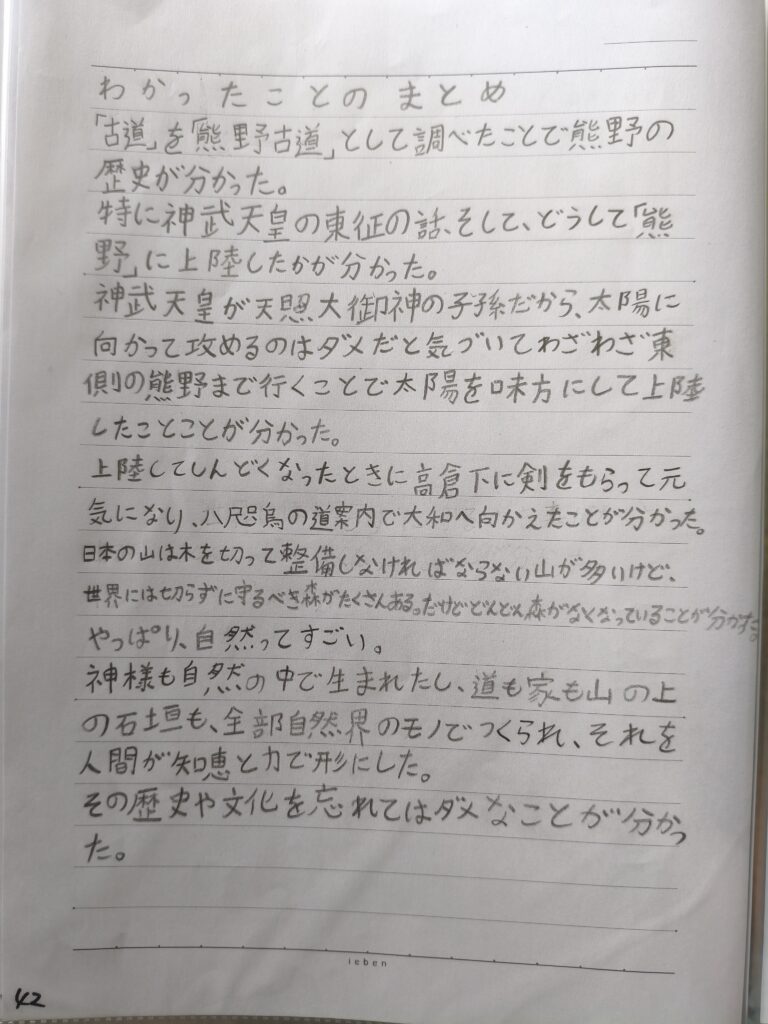 わかったことのまとめ
「古道」を「熊野古道」として調べたことで熊野の
歴史が分かった。
特に神武天皇の東征の話、そして、どうして「熊
野」に上陸したかが分かった。
神武天皇が天照大御神の子孫だから、太陽に
向かって攻めるのはダメだと気づいてわざわざ東
側の熊野まで行くことで太陽を味方にして上陸
したことことが分かった。
上陸してしんどくなったときに高倉下に剣をもらって元
気になり、八咫烏の道案内で大和へ向かえたことが分かった。
日本の山は木を切って整備しなければならない山が多いけど、
世界には切らずに守るべき森がたくさんある。だけどどんどん森がなくなっていることが分かった。
やっぱり、自然ってすごい。
神様も自然の中で生まれたし、道も家も山の上
の石垣も、全部自然界のモノでつくられ、それを
人間が知恵と力で形にした。
その歴史や文化を忘れてはダメなことが分かっ
た。
leben
42